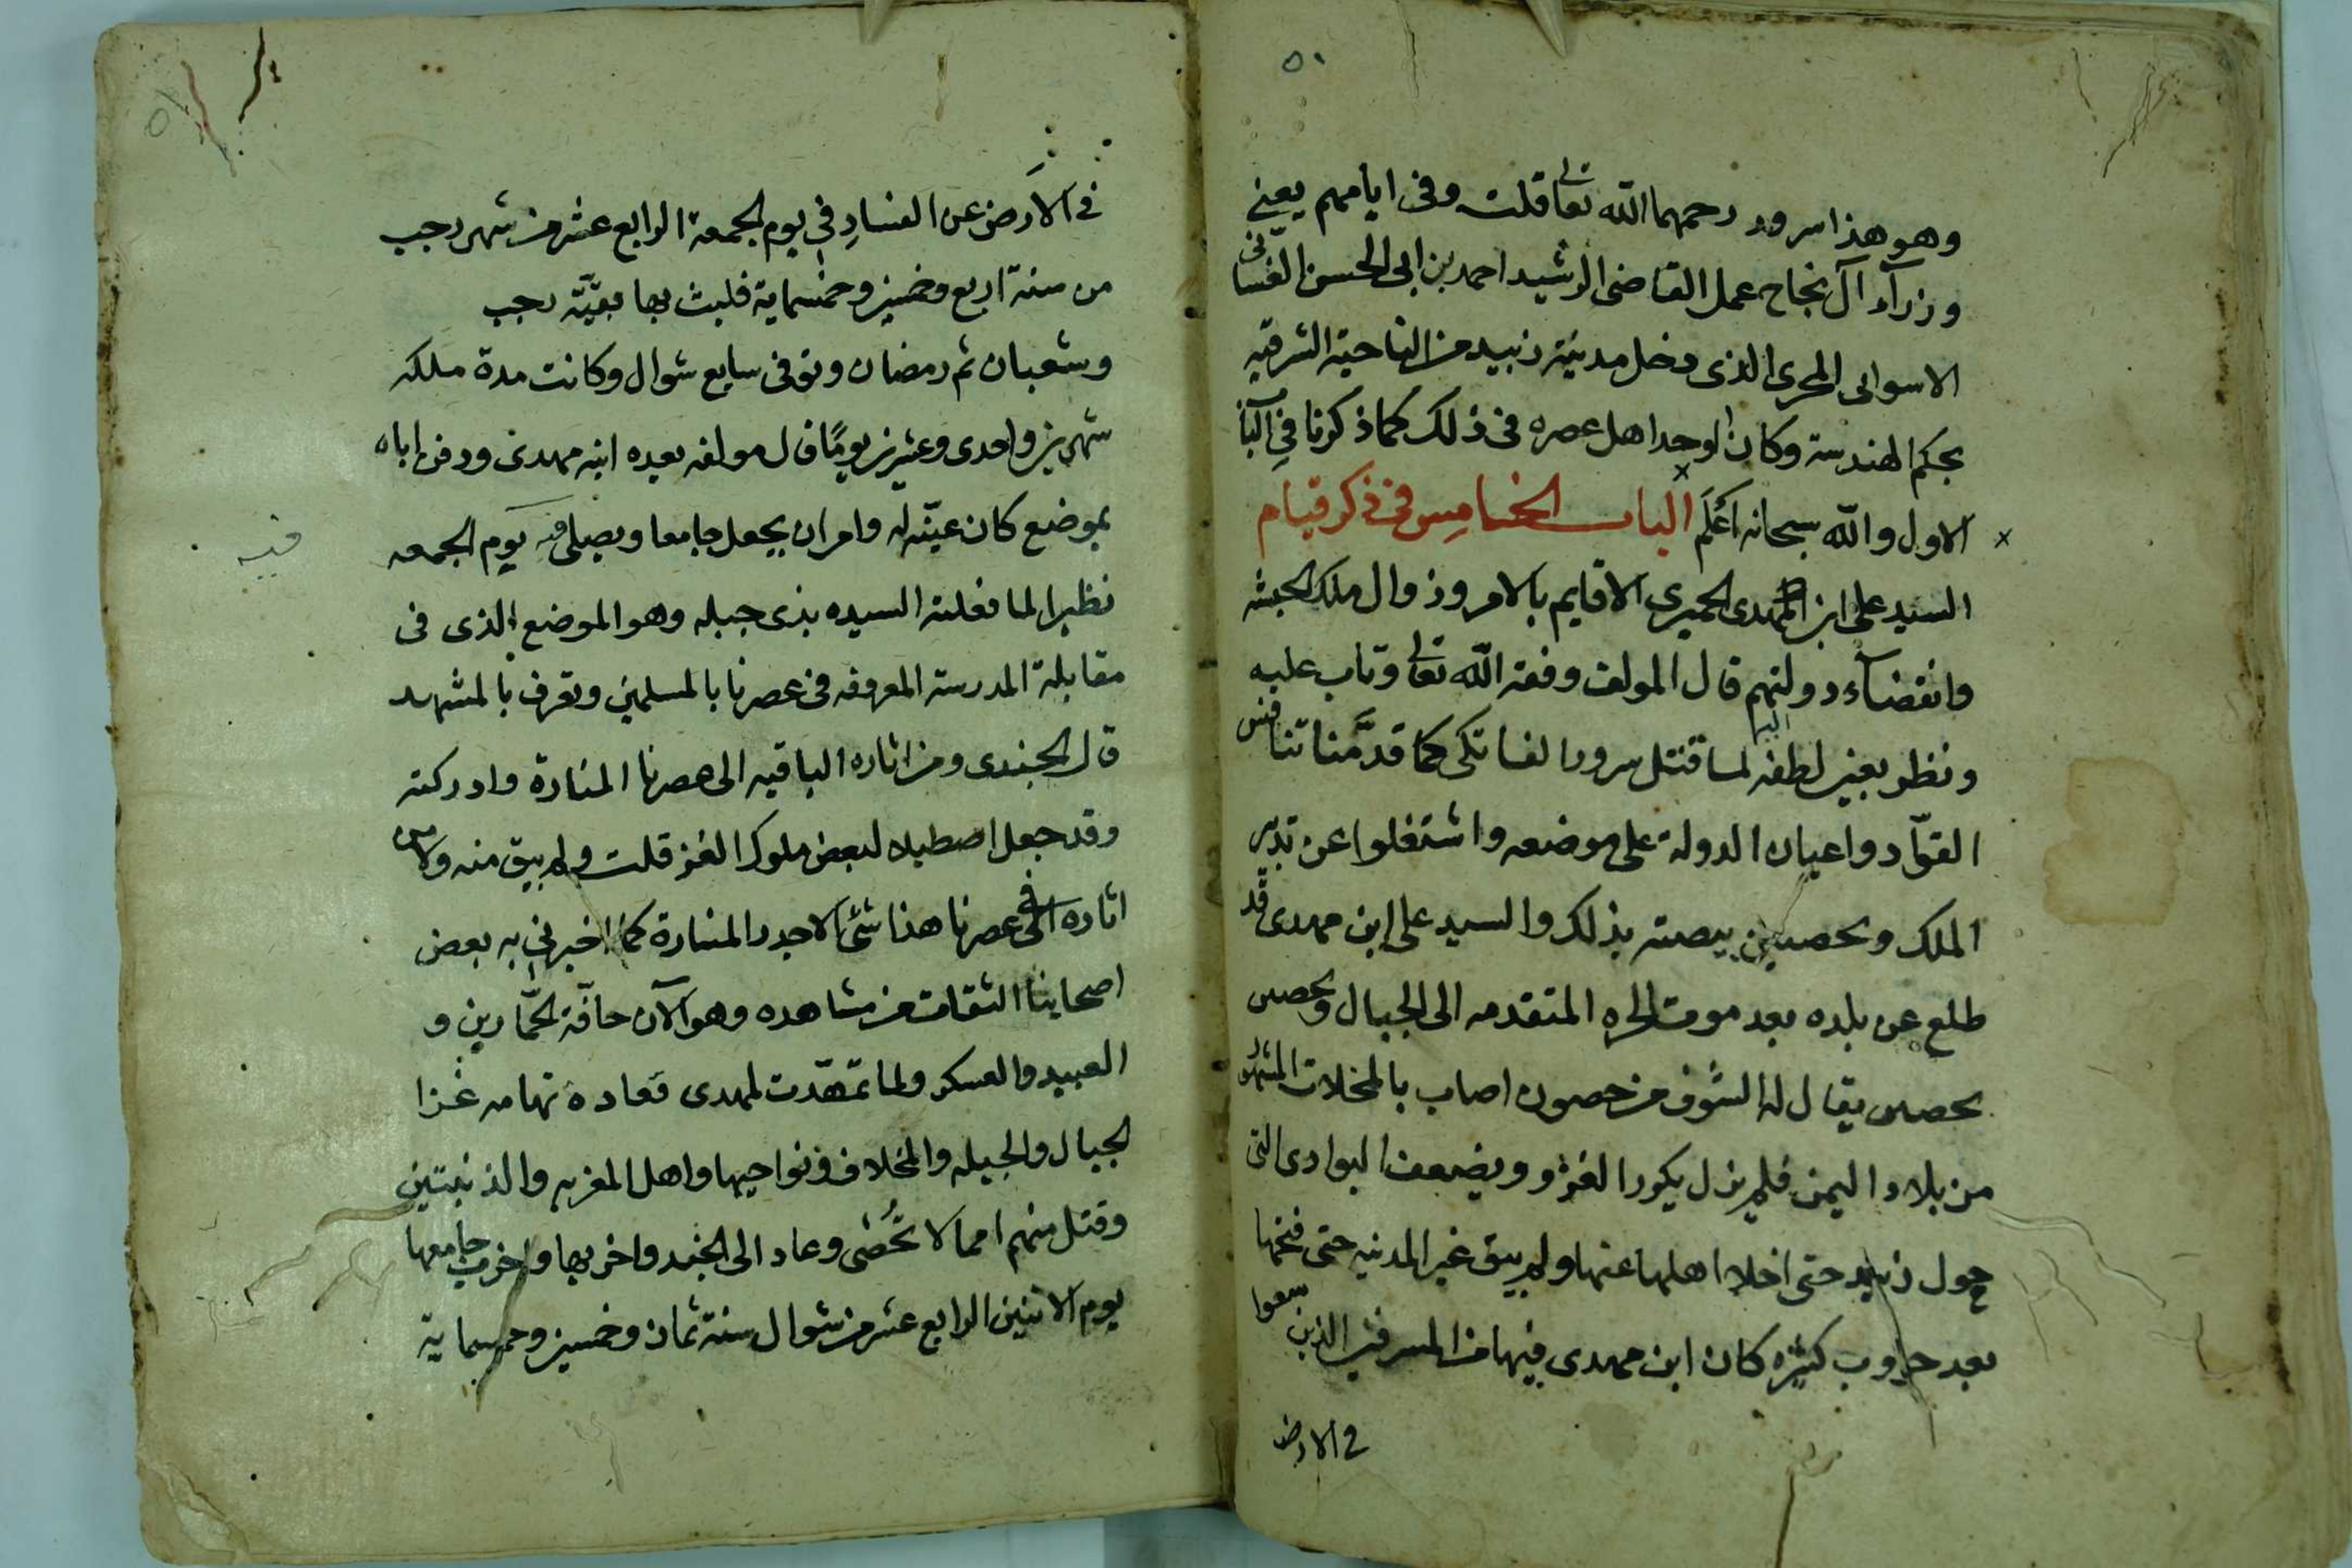 ٥٠
وهو هذا سرور رحمهما الله تعالى قلت وفى ايامهم يعني
وزرآء آل نجاح عمل القاضى الرشيد احمد بن ابى الحسن الغسانى
الاسوانى المجرى الذى دخل مدينة زبيد من الناحية الشرقيه
بحكم الهندسة وكان اوحد اهل عصره فى ذلك كما ذكرنا في البا
الاول والله سبحانه اعلم الباب الخامس فى ذكر قيام
السيد على ابن المهدى الحميرى الاقايم بالامر وزوال ملك الحبشه
وانقضآء دولتهم قال المولف وفقه الله تعالى وتاب عليه
ونظر بعين لطفه اليه لما قتل سرور الفاتكى كما قدمنا تنافس
القوّاد واعيان الدولة على موضعه واشتغلوا عن تدبير
الملك وتحصين بيصته بذلك والسيد على ابن مهدى قد
طلع عن بلده بعد موت الحره المتقدمه الى الجبال وتحصن
بحصن يقال له الشرف من حصون اصاب بالمخلاف المشهور
من بلاد اليمن فلم يزل يكرر الغزو ويضعف البوادى التى
حول زبيد حتى اخلا اهلها عنها ولم يبق غير المدنيه حتى فتحها
بعد حروب كثيره كان ابن مهدى فيها من المسرفين الذين سعوا
فى الارض
٥١
فى الارض عن الفسادِ في يوم الجمعة الرابع عشر من شهر رجب
من سنة اربع وخمسين وخمسماية فلبث بها بقيّة رجب
وشعبان ثم رمضان وتوفى سابع شوال وكانت مدة ملكه
شهرين واحدى وعشرين يومًا قال مولفه بعده ابنه مهدى ودفن اباه
بموضع كان عيّنه له وامر ان يجعل جامعا ويصلى فيه يوم الجمعه
فيه
نظيرا لما فعلته السيده بذى جبله وهو الموضع الذى فى
مقابلة المدرسة المعروفه فى عصرنا بالمسلمين وتعرف بالمشهد
قال الجندى ومن اثاره الباقيه الى عصرنا المنارة وادركته
وقد جعل اصطبلا لبعض ملوك الغز قلت ولم يبق منه ولا من
اثاره فى عصرنا هذا شئ الا جدر المنارة كما اخبرني به بعض
اصحابنا الثقات من مشاهده وهو الآن حافّة الحمّارين و
العبيد والعسكر ولما تمهّدت لمهدى قعادة تهامه غزا
الجبال والجبله والمخلاف ونواحيها واهل المغربه والذنبتين
وقتل منهم امما لا تُحصى وعاد الى الجند واخربها واخرب جامعها
يوم الاثنين الرابع عشر من شوال سنة ثمان وخمسين وخمسماية